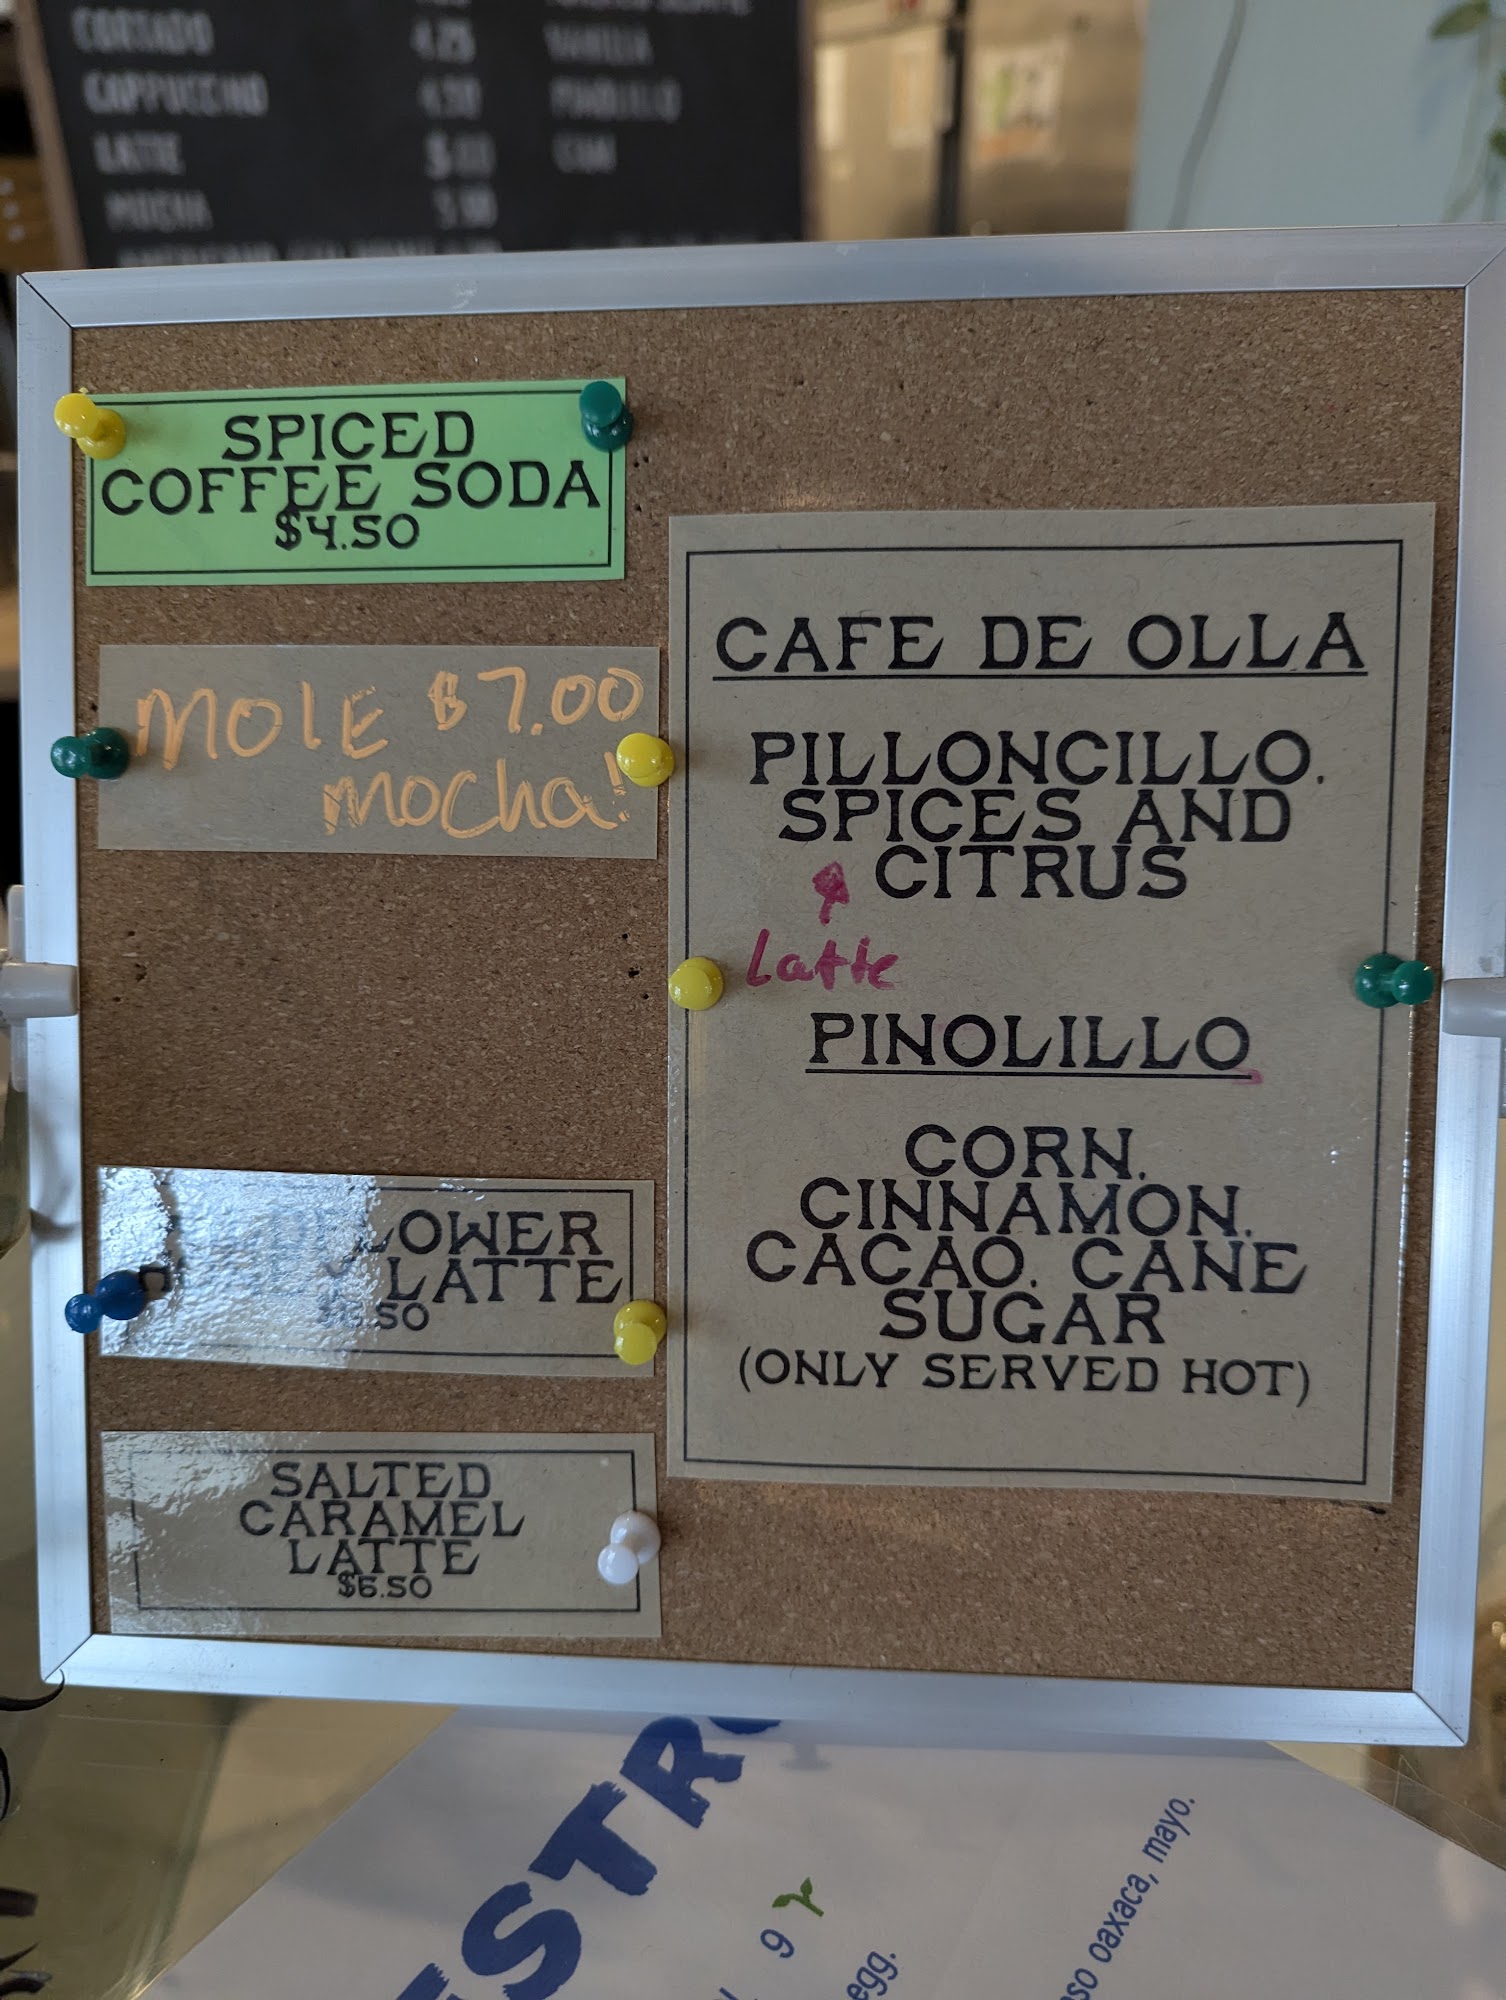 CORTADO 4.25 VANILLA
CAPPUCCINO 4.50
LATTE
MOCHA
SPICED
COFFEE SODA
$4.50
MOLE $7.00
MOCHA!
LATTE
SALTED
CARAMEL
LATTE
$6.50
CAFE DE OLLA
PILLONCILLO.
SPICES AND
CITRUS
Latte
PINOLILLO
CORN.
CINNAMON.
CACAO. CANE
SUGAR
(ONLY SERVED HOT)
9
egg.
oaxaca, mayo.